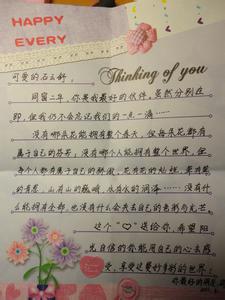 HAPPY
EVERY
可爱的石云舒:
Thinking of you
同窗二年,你是我最好的伙伴,虽然分别在
即,但我仍不会忘记我们的一点一滴……
没有哪朵花能拥有整个春天,但每朵花都有
属于自己的芬芳,没有哪个人能拥有整个世界,但
每个人都有属于自己的骄傲,花有花的灿烂,草有草
的青葱,山有山的巍峨,水有水的润泽……没有什
么能拥有全部,也没有什么会失去自己的色彩与光芒
这个“♡”送给你,希望阳
光自信的你能用自己的心去感
受,享受这美好多彩的世界!
你最好的朋友